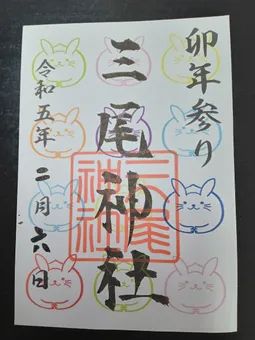 卯年参り
三尾神社
令和五年 二月六日
三尾神社